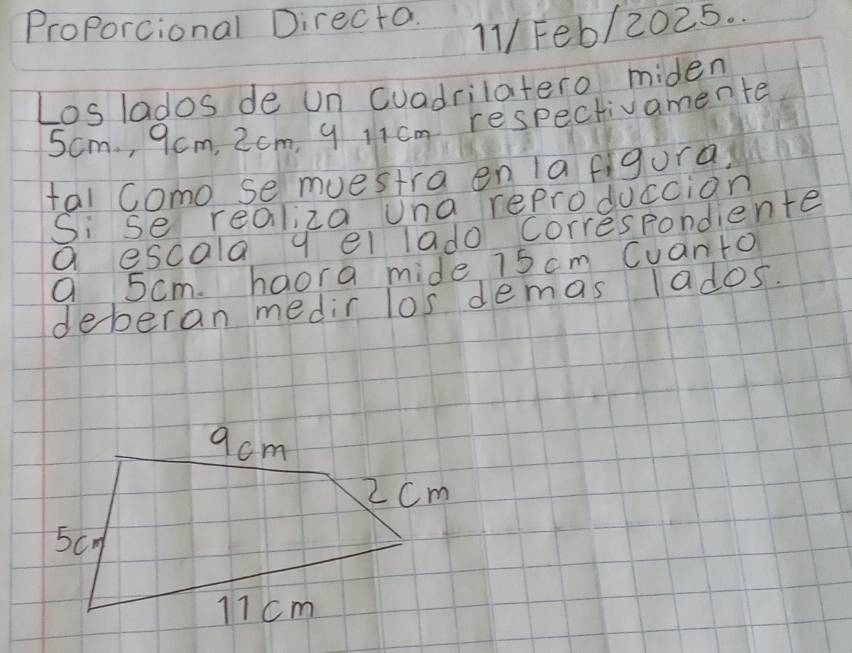 Proporcional Directa.
11/Feb/2025..
Los lados de un cuadrilatero miden
5cm., 9cm, 2cm, y 11cm respectivamente
tal como se muestra en la figura.
Si se realiza una reproduccion
a escala y el lado correspondiente
a 5cm. haora mide 15cm Cuanto
deberan medir los demas lados.
9cm
2cm
5cm
11cm